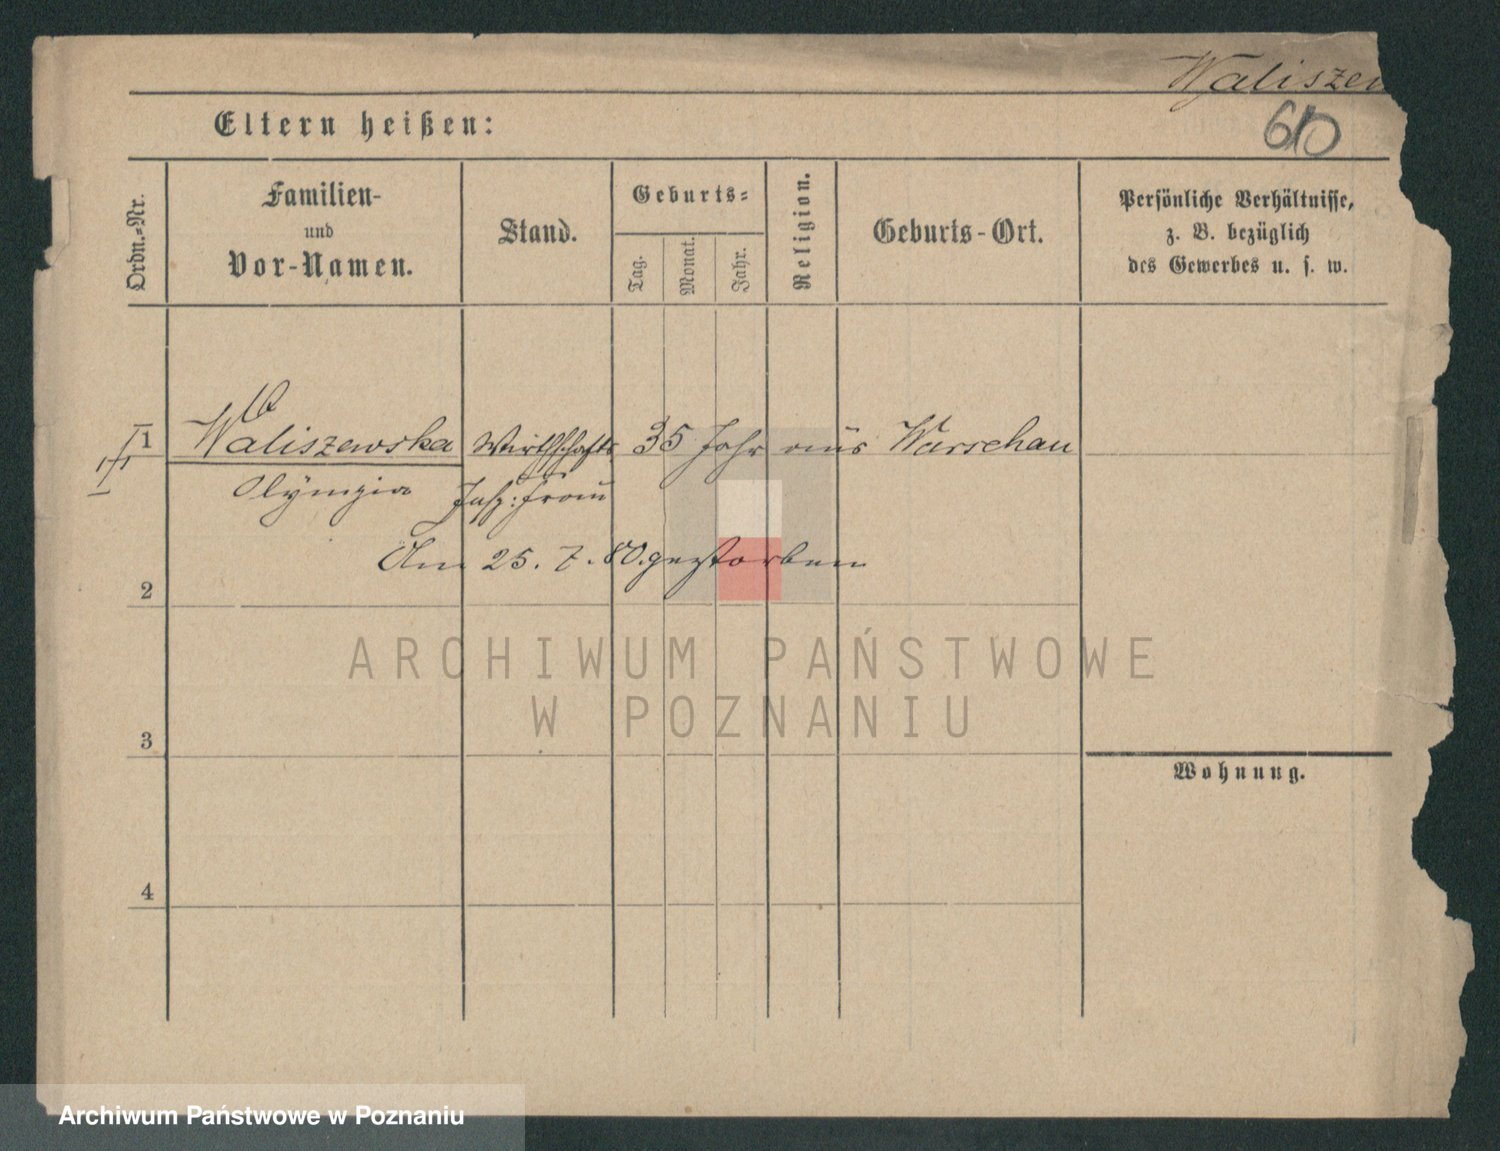 Waliszew
Eltern heißen:
610
Ordn.=Nr.
Familien-
und
Vor-Namen.
Stand.
Geburts=
Tag.
Monat.
Jahr.
Religion.
Geburts-Ort.
Persönliche Verhältnisse,
z. B. bezüglich
des Gewerbes u. s. w.
1 Waliszewska Wirthschafts 35 Jahr aus Warschau
Olympia Insp: Frau
Am 25. 7. 80. gestorben
2
ARCHIWUM PAŃSTWOWE
W POZNANIU
3
Wohnung.
4
Archiwum Państwowe w Poznaniu